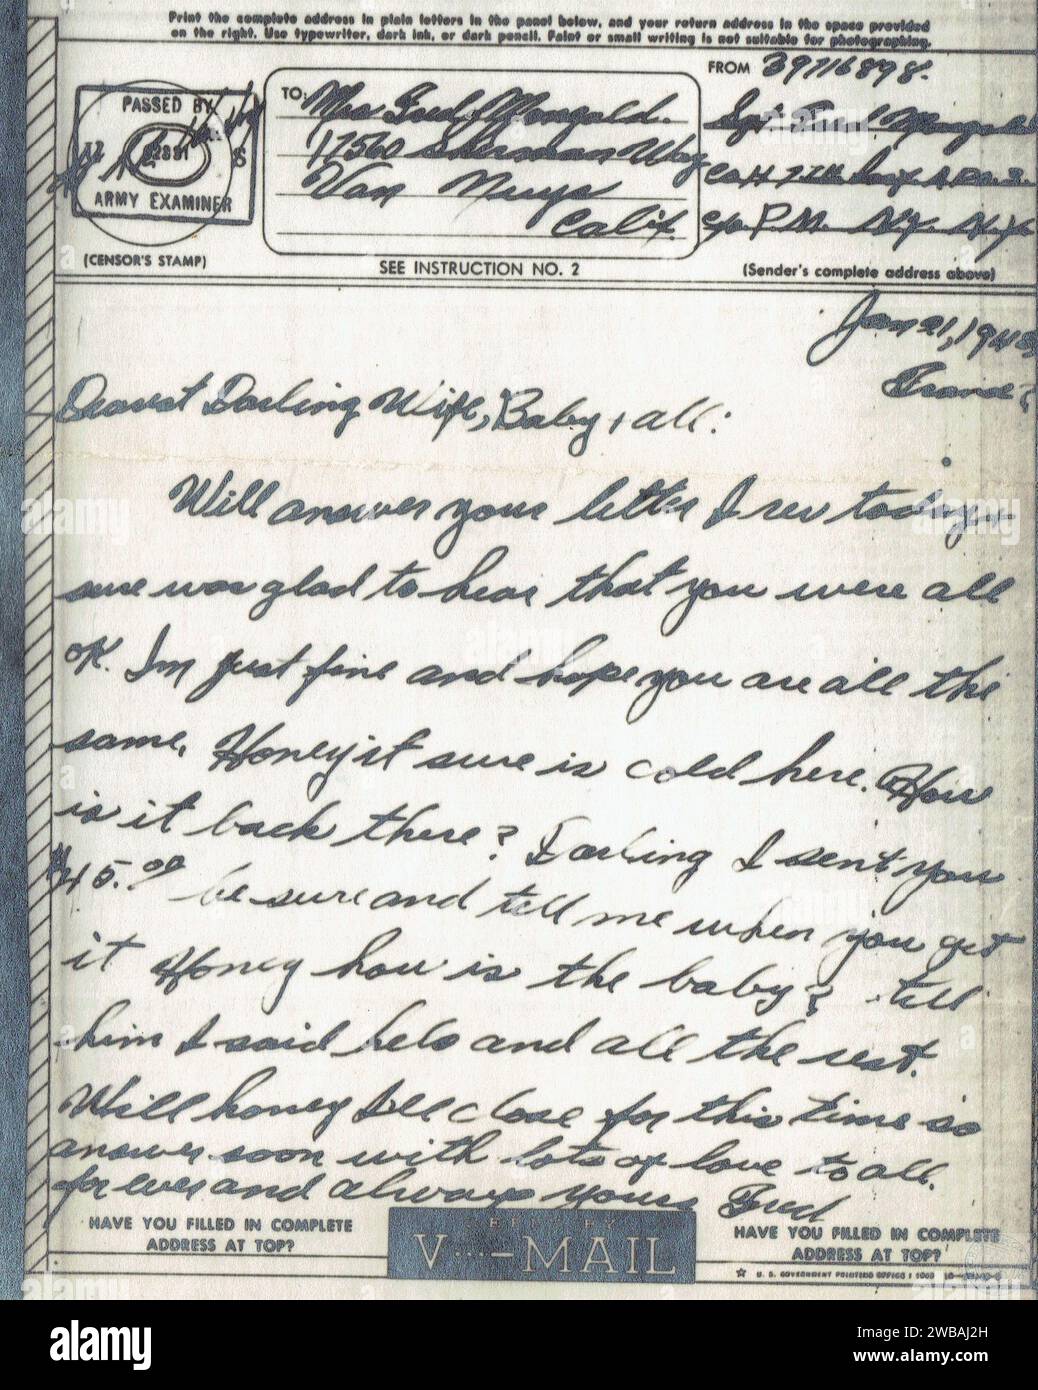 Print the complete address in plain letters in the panel below, and your return address in the space provided
on the right. Use typewriter, dark ink, or dark pencil. Faint or small writing is not suitable for photographing.
PASSED BY
U S
ARMY EXAMINER
(CENSOR'S STAMP)
TO:
Mrs Fred Mongold.
17560 Sherman Way
Van Nuys
Calif.
SEE INSTRUCTION NO. 2
FROM 39716898.
Sgt Fred Mongold
Co H 7TH Inf. A.P.O. 3.
c/o P.M. N.Y. N.Y.
(Sender's complete address above)
Jan 21, 194
Dearest Darling Wife, Baby & all:
Will answer your letter I rev today &
sure was glad to hear that you were all
ok. Im just fine and hope you are all the
same. Honey it sure is cold here. How
is it back there? Darling I sent you
$45.00 be sure and tell me when you get
it Honey how is the baby? tell
him I said helo and all the rest.
Well honey Ill close for this time so
answer soon with lots of love to all.
for ever and always yours Fred
HAVE YOU FILLED IN COMPLETE
ADDRESS AT TOP?
V···-MAIL
HAVE YOU FILLED IN COMPLETE
ADDRESS AT TOP?
☆ U. S. GOVERNMENT PRINTING OFFICE
alamy
Image ID: 2WBAJ2H
www.alamy.com